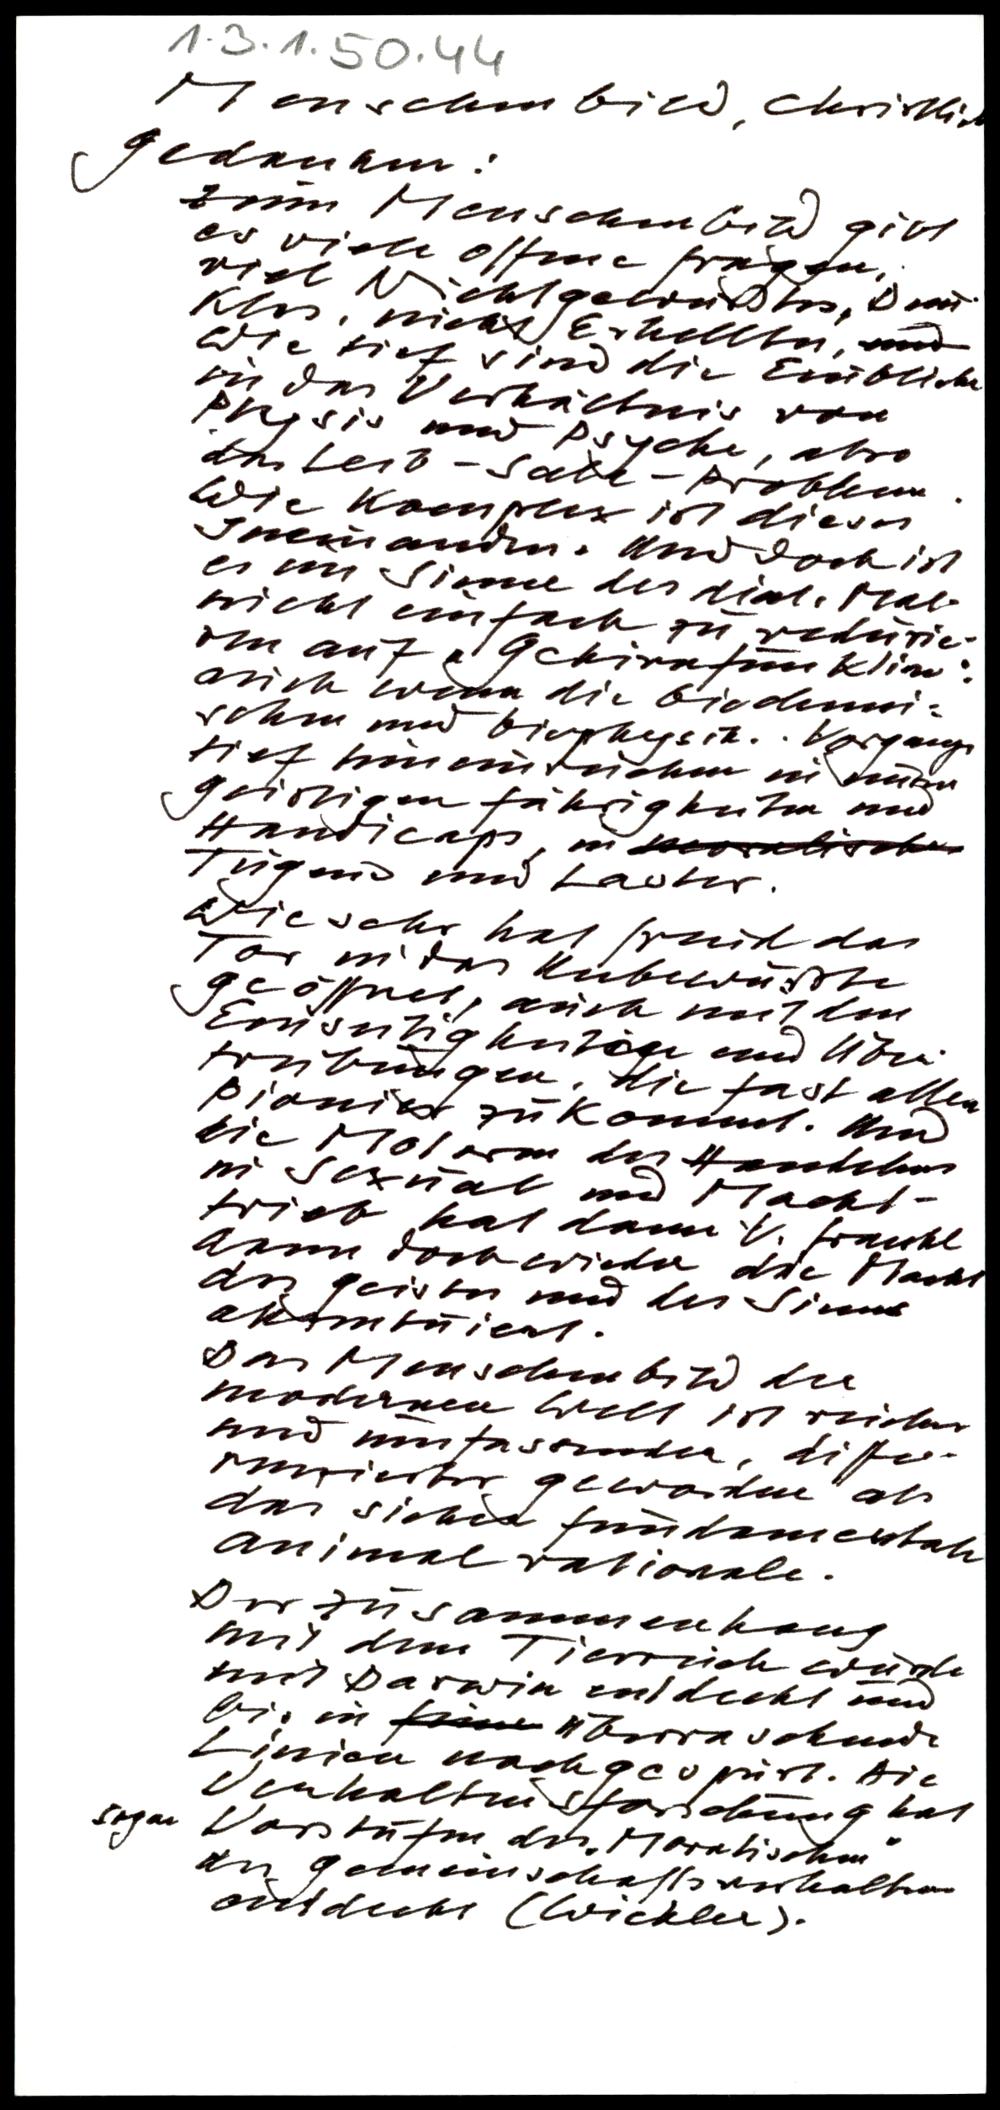 1.3.1.50.44
Menschenbild, christlich
Gedanken:
Zum Menschenbild gibt
es viele offene Fragen,
viel Nichtgewußtes, Dun-
kles, nicht Erhelltes, und
Wie tief sind die Einblicke
in das Verhältnis von
Physis und Psyche, also
das Leib-Seele-Problem.
Wie komplex ist dieses
Ineinander. Und doch ist
es im Sinne des dial. Mat.
nicht einfach zu reduzie-
ren auf "Gehirnfunktion":
auch wenn die biochemi-
schen und biophysik. Vorgänge
tief hineinreichen in unsere
geistigen Fähigkeiten und
Handicaps, in moralischer
Tugend und Laster.
Wie sehr hat Freud das
Tor in das Unbewußte
geöffnet, auch mit den
Einseitigkeiten und Über-
treibungen, die fast allen
Pionier zukommt. Und
die Motoren des Handelns
in Sexual und Macht-
trieb hat dann V. Frankl
dann doch wieder die Macht
des Geistes und des Sinns
akzentuiert.
Das Menschenbild der
modernen Welt ist reicher
und umfassender, diffe-
renzierter geworden als
das sicher fundamentale
animal rationale.
Der Zusammenhang
mit dem Tierreich wurde
mit Darwin entdeckt und
bis in feine überraschende
Linien nachgespürt. Die
Verhaltensforschung hat
sogar Vorstufen des "Moralischen"
des Gemeinschaftsverhaltens
entdeckt (Wickler).